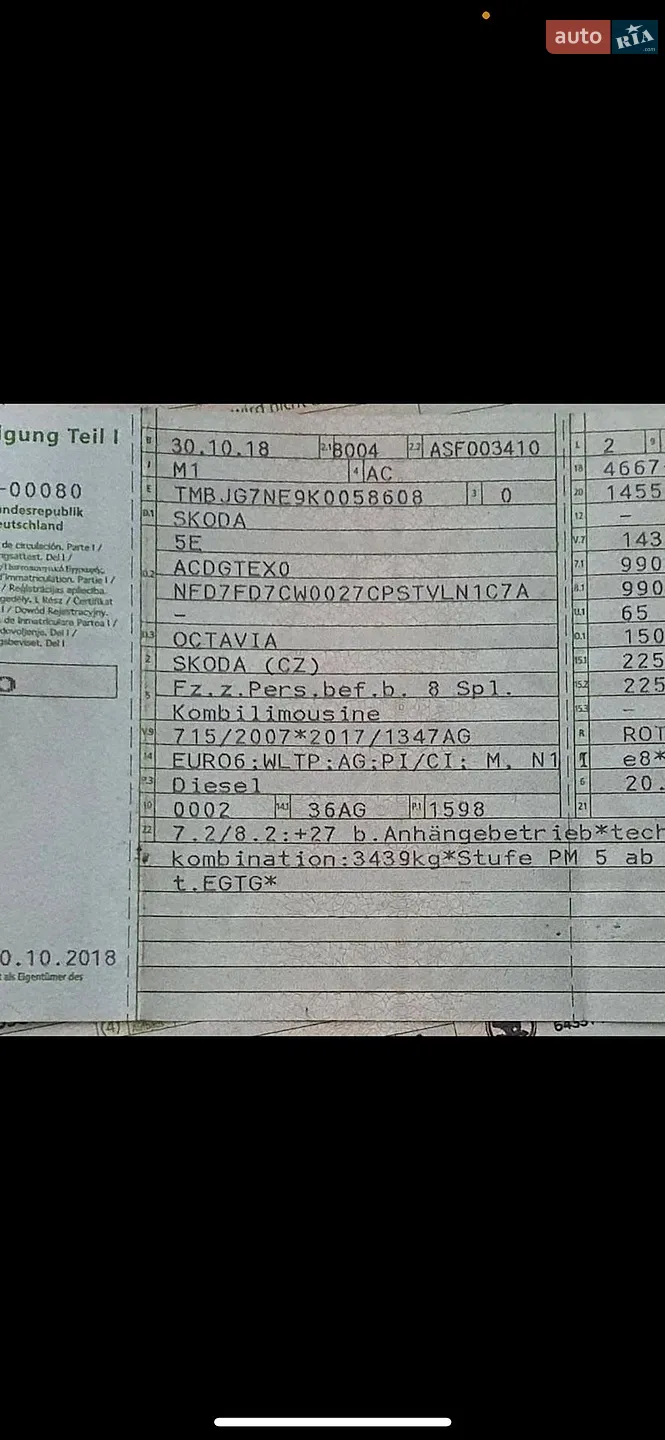 auto RIA .com
igung Teil I
B 30.10.18 2.1 B004 2.2 ASF003410 L 2 9
J M1 4 AC 18 4667
-00080
E TMBJG7NE9K0058608 3 0 20 1455
ndesrepublik
eutschland
D.1 SKODA 12 –
5E V.7 143
de circulación. Parte I /
ngsattest. Del I /
d'immatriculation. Partie I /
/ Reģistrācijas apliecība.
I / Dowód Rejestracyjny.
de Inmatriculare Partea I /
dovoljenje. Del I /
gsbeviset. Del I
D.2 ACDGTEX0 7.1 990
NFD7FD7CW0027CPSTVLN1C7A 8.1 990
– U.1 65
D.3 OCTAVIA O.1 150
2 SKODA (CZ) 15.1 225
5 Fz.z.Pers.bef.b. 8 Spl. 15.2 225
Kombilimousine 15.3 –
V.9 715/2007*2017/1347AG R ROT
14 EURO6;WLTP;AG;PI/CI; M, N1 e8*
P.3 Diesel 6 20.
10 0002 14.1 36AG P.1 1598 21
22 7.2/8.2:+27 b.Anhängebetrieb*tech
kombination:3439kg*Stufe PM 5 ab
t.EGTG*
0.10.2018
als Eigentümer des
(4)